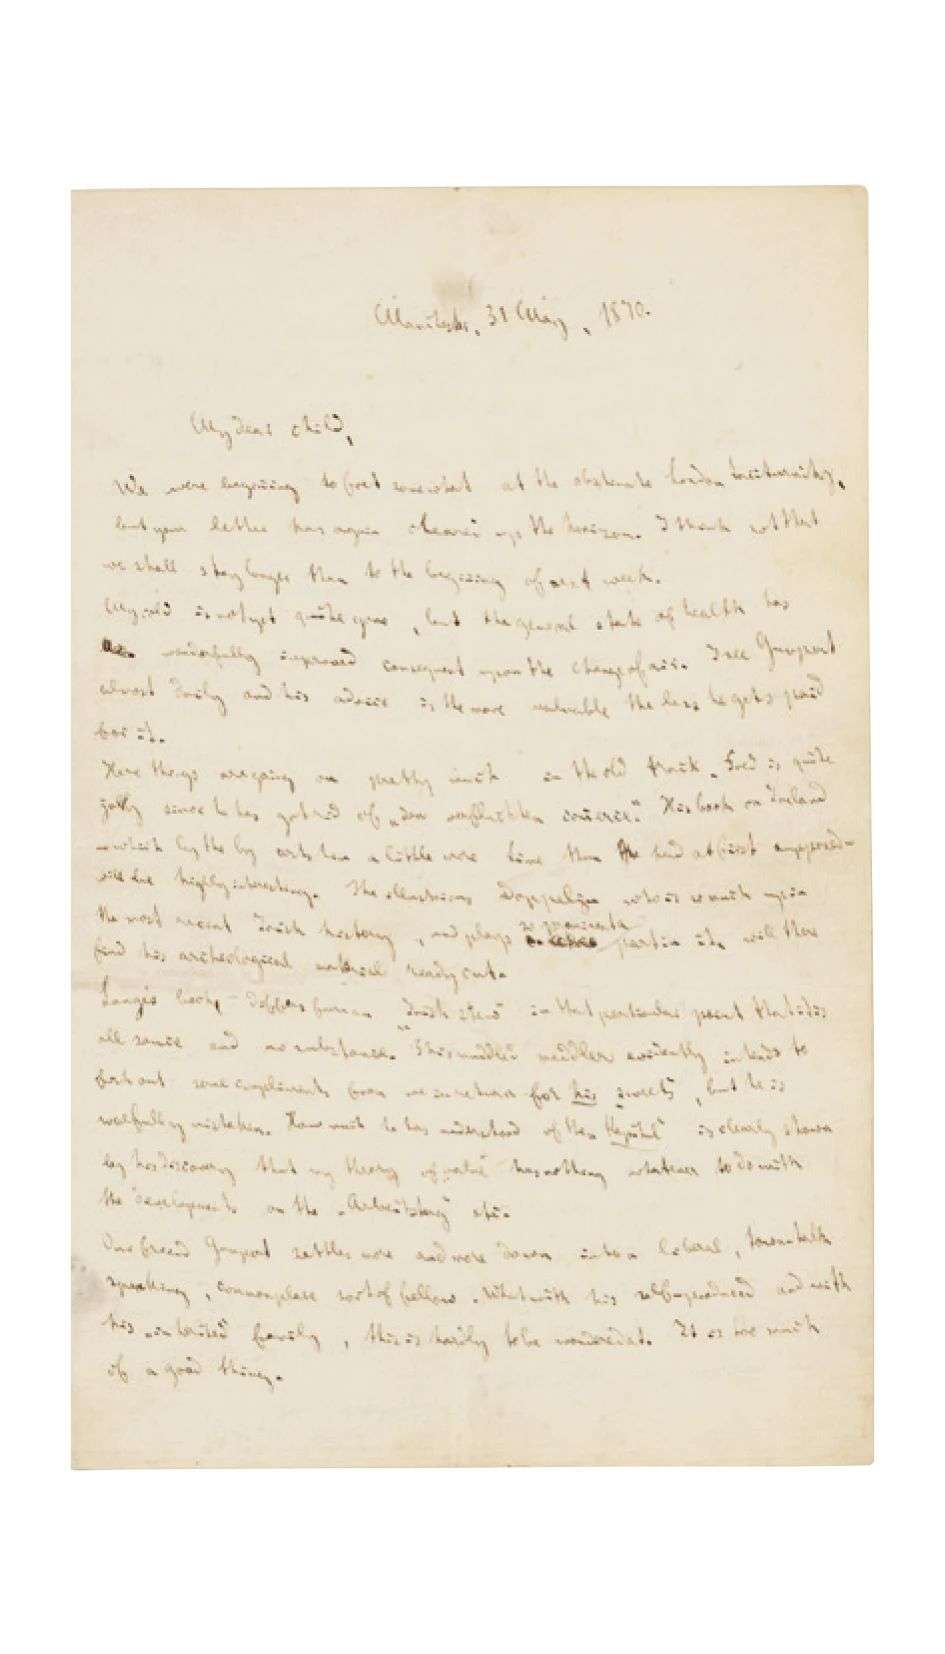 Manchester, 31 May, 1870.
My dear child,
We were beginning to fret somewhat at the obstinate London taciturnity,
but your letter has again cleared up the horizon. I think not that
we shall stay longer than to the beginning of next week.
My cold is not yet quite gone, but the general state of health has
wonderfully improved consequent upon the change of air. I see Gumpert
almost daily and his advice is the more valuable the less he gets paid
for it.
Here things are going on pretty much in the old track. Fred is quite
jolly since he has got rid of "den verfluchten Commerce". His book on Ireland
– which by the by costs him a little more time than he had at first supposed –
will be highly interesting. The illustrious Doppelju who is so much up in
the most recent Irish history, and plays so prominent a part in it, will there
find his archeological material ready cut.
Lange's book differs from an "Irish stew" in that particular point that it is
all sauce and no substance. This muddled meddler evidently intends to
fish out some compliments from me in return for his "sweets", but he is
woefully mistaken. How much he has understood of the "Kapital" is clearly shown
by his discovery that my theory of "value" has nothing whatever to do with
the developments on the "Arbeitstag" etc.
Our friend Gumpert settles more and more down into a liberal, town talk
speaking, commonplace sort of fellow. What with his selfproduced and with
his "inherited" family, this is hardly to be wondered at. It is too much
of a good thing.